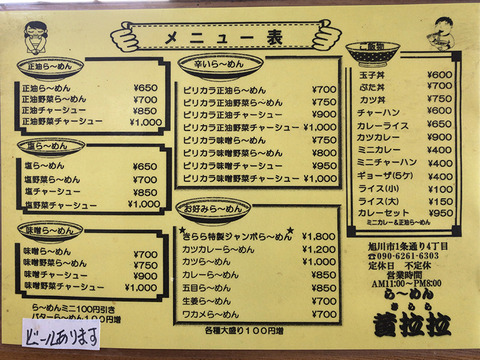 メニュー表
正油ら〜めん
正油ら〜めん ¥650
正油野菜ら〜めん ¥700
正油チャーシュー ¥850
正油野菜チャーシュー ¥1,000
塩ら〜めん
塩ら〜めん ¥650
塩野菜ら〜めん ¥700
塩チャーシュー ¥850
塩野菜チャーシュー ¥1,000
味噌ら〜めん
味噌ら〜めん ¥700
味噌野菜ら〜めん ¥750
味噌チャーシュー ¥900
味噌野菜チャーシュー ¥1,000
ら〜めんミニ100円引き
バターら〜めん100円増
ビールあります
辛いら〜めん
ピリカラ正油ら〜めん ¥700
ピリカラ正油野菜ら〜めん ¥750
ピリカラ正油チャーシュー ¥900
ピリカラ正油野菜チャーシュー ¥1,000
ピリカラ味噌ら〜めん ¥700
ピリカラ味噌野菜ら〜めん ¥800
ピリカラ味噌チャーシュー ¥950
ピリカラ味噌野菜チャーシュー ¥1,000
お好みら〜めん
きらら特製ジャンボら〜めん ¥1,800
カツカレーら〜めん ¥1,200
カツら〜めん ¥1,000
カレーら〜めん ¥850
五目ら〜めん ¥850
生姜ら〜めん ¥700
ワカメら〜めん ¥700
各種大盛り100円増
ご飯物
玉子丼 ¥600
ぶた丼 ¥700
カツ丼 ¥750
チャーハン ¥600
カレーライス ¥650
カツカレー ¥900
ミニカレー ¥400
ミニチャーハン ¥400
ギョーザ(5ケ) ¥400
ライス(小) ¥100
ライス(大) ¥150
カレーセット ¥950
ミニカレー&正油ら〜めん
旭川市1条通り4丁目
☎090-6261-6303
定休日 不定休
営業時間
AM11:00〜PM8:00
ら〜めん
きらら
黄拉拉